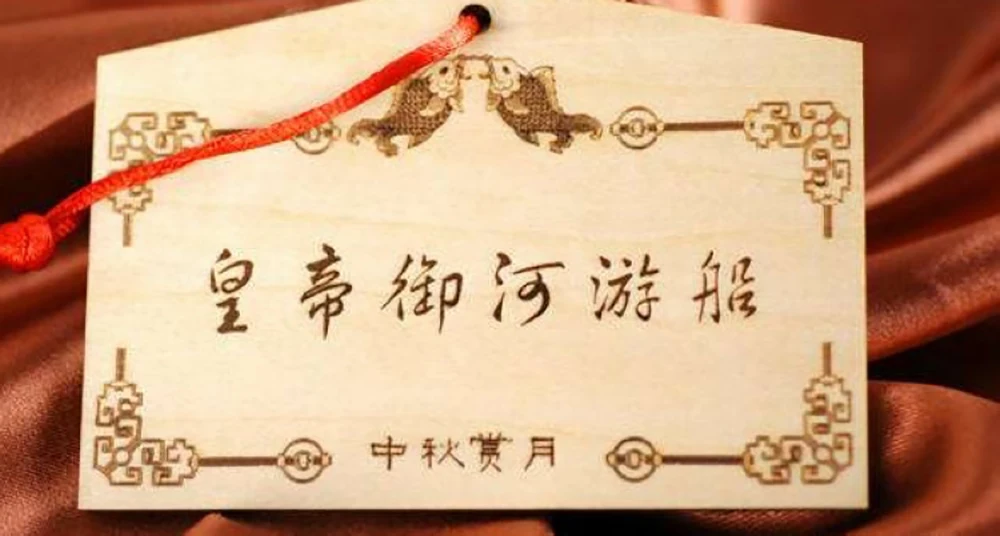 皇帝御河游船
中秋赏月